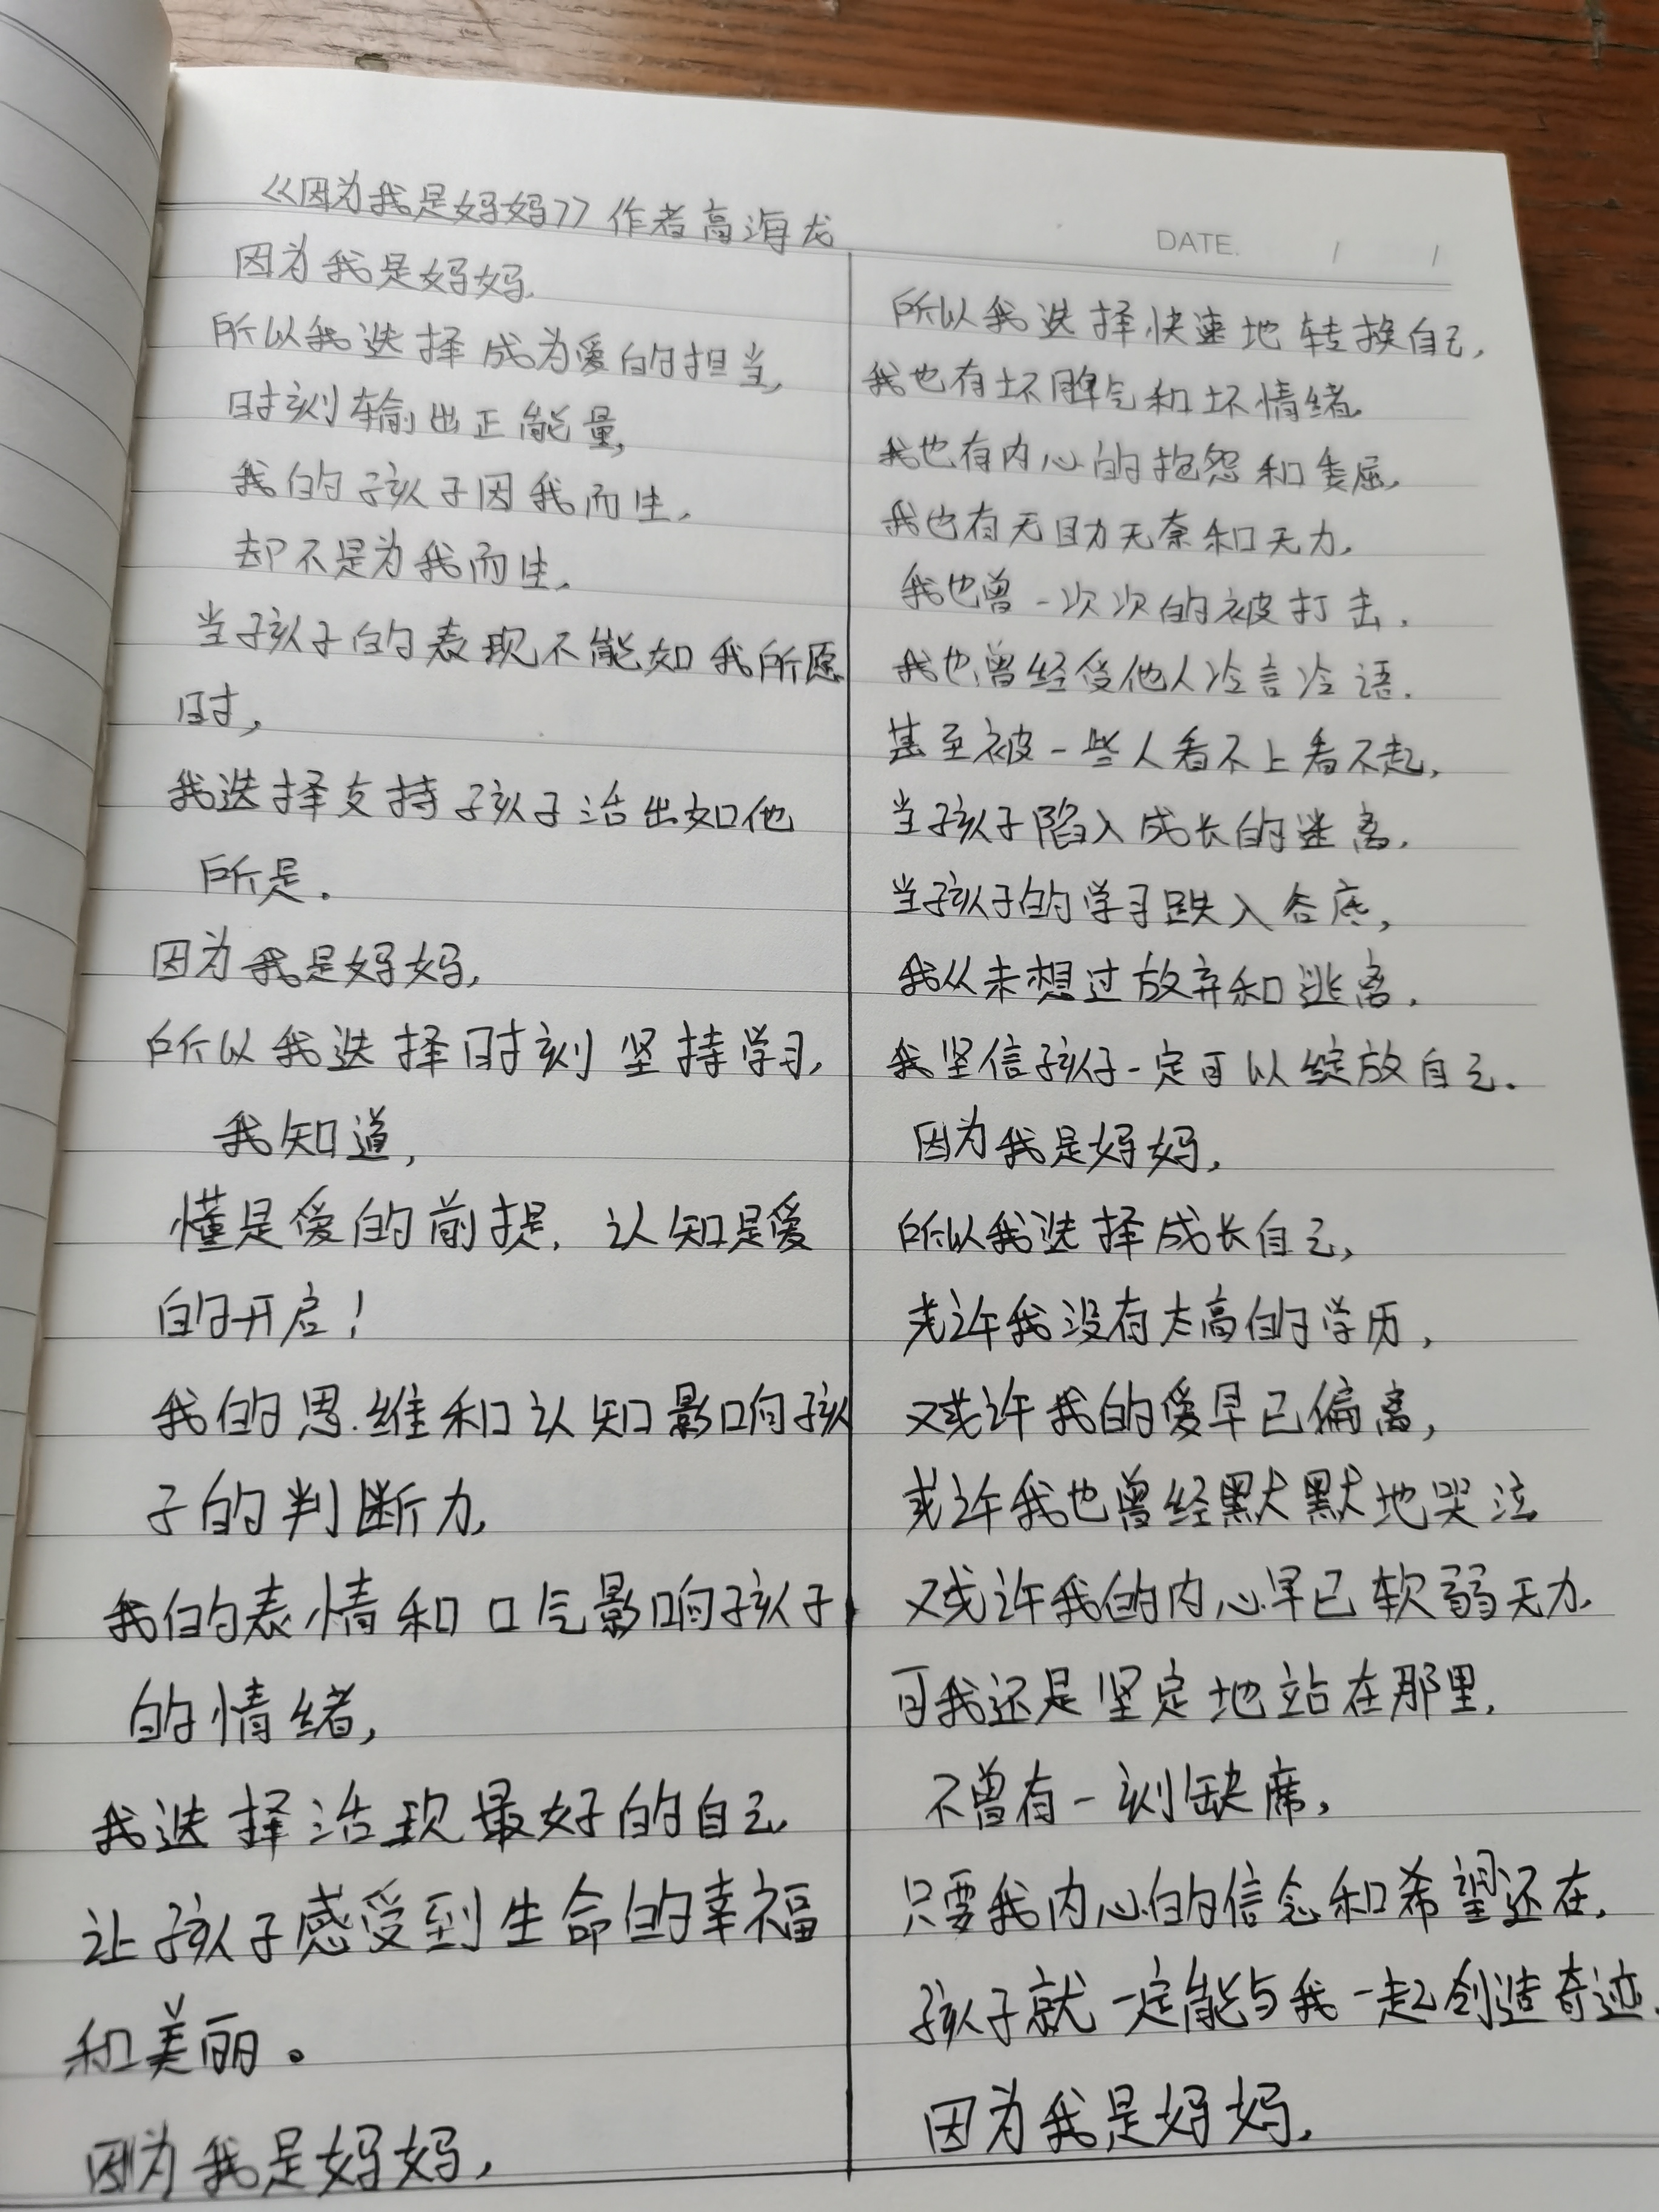 《因为我是妈妈》作者高海龙
DATE. / /
因为我是妈妈,
所以我选择成为爱的担当,
时刻输出正能量,
我的孩子因我而生,
却不是为我而生,
当孩子的表现不能如我所愿
时,
我选择支持孩子活出如他
所是。
因为我是妈妈,
所以我选择时刻坚持学习,
我知道,
懂是爱的前提,认知是爱
的开启!
我的思维和认知影响孩
子的判断力,
我的表情和口气影响孩子
的情绪,
我选择活现最好的自己,
让孩子感受到生命的幸福
和美丽。
因为我是妈妈,
所以我选择快速地转换自己,
我也有坏脾气和坏情绪,
我也有内心的抱怨和委屈,
我也有无助无奈和无力,
我也曾一次次的被打击,
我也曾经受他人冷言冷语,
甚至被一些人看不上看不起,
当孩子陷入成长的迷离,
当孩子的学习跌入谷底,
我从未想过放弃和逃离,
我坚信孩子一定可以绽放自己.
因为我是妈妈,
所以我选择成长自己,
或许我没有太高的学历,
又或许我的爱早已偏离,
或许我也曾经默默地哭泣
又或许我的内心早已软弱无力,
可我还是坚定地站在那里,
不曾有一刻缺席,
只要我内心的信念和希望还在,
孩子就一定能与我一起创造奇迹,
因为我是妈妈,